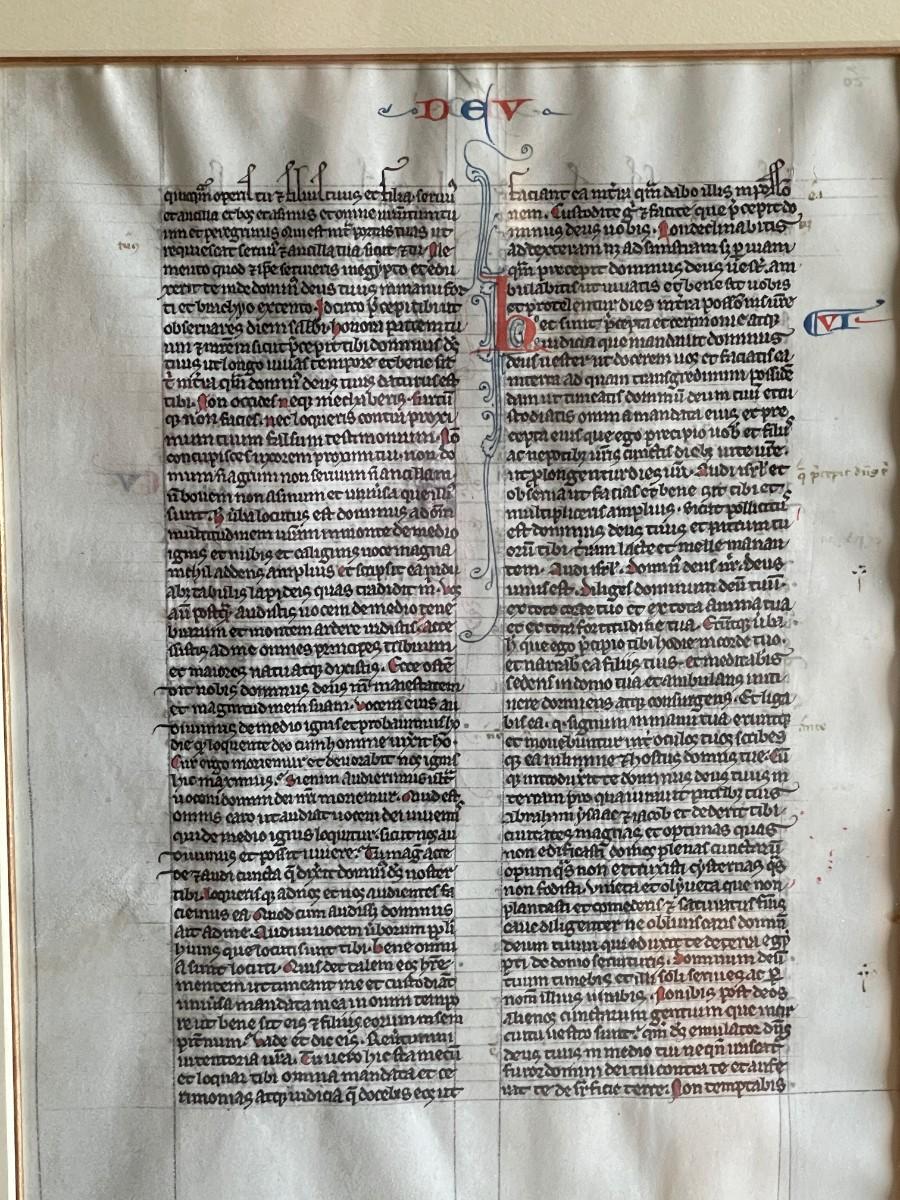 DEV
quicq̄m operis tu ⁊ filius tuus et filia seruus
et ancilla et bos et asinus et omne iumentum tu
um et peregrinus qui est int̄ portas tuas ut
requiescat seruus ⁊ ancilla tua sicut ⁊ tu. Me
mento quod ⁊ ip̄e seruieris in egypto et edu
xerit te inde dominus deus tuus in manu for
ti et brachio extento. Idcirco p̄cepit tibi ut
obseruares diem sabb̄i. honora patrem tu
um ⁊ matrem sicut p̄cepit tibi dominus ds̄
tuus ut longo uiuas tempore et bene sit
t̄ in t̄ra q̄m dominus deus tuus daturus est
tibi. Non occides neq̄ mechaberis. furtū
q̄ non facies. nec loqueris contra proxi
mum tuum falsum testimonium. Nō
concupisces uxorem proximi tui. non do
mum n̄ agrum non seruum n̄ ancillam
n̄ bouem non asinum et uniuersa que illi
sunt. h̄ uerba locutus est dominus ad om̄
multitudinem uestram in monte de medio
ignis et nubis et caliginis uoce magna
nichil addens amplius et scripsit ea in du
abus tabulis lapideis quas tradidit m̄. Vos
aū postq̄ audistis uocem de medio tene
brarum et montem ardere uidistis. acce
ssistis ad me omnes principes tribuum
et maiores natu atq̄ dixistis. Ecce osten
dit nobis dominus deus nr̄ maiestatem
et magnitudinem suam. Vocem eius au
diuimus de medio ignis et probauimus ho
die q̄ loquente deo cum homine uixit ho.
Cur ergo moriemur et deuorabit nos ignis
hic maximus. Si enim audierimus ultra
uocem domini dei nr̄i moriemur. Quid est
omnis caro ut audiat uocem dei uiuentis
qui de medio ignis loquitur. sicut nos au
diuimus et possit uiuere. Tu mag̃ acce
de ⁊ audi cuncta q̄ dixerit dominus ds̄ noster
tibi loquerisq̄ ad nos et nos audientes fa
ciemus ea. Quod cum audisset dominus
ait ad me. Audiui uocem uerborum pp̄li
huius que locuti sunt tibi. bene omni
a sunt locuti. Quis det talem eos h̄re
mentem ut timeant me et custodiat
uniuersa mandata mea in omni tempo
re ut bene sit eis ⁊ filiis eorum in sem
piternum. Vade et dic eis. Reuertimini
in tentoria uestra. Tu uero hic sta mecum
et loquar tibi omnia mandata et ce
rimonias atq̄ iudicia q̄ docebis eos ut
faciant ea in t̄ra q̄m dabo illis in possessio
nem. Custodite g̊ ⁊ facite que p̄cepit do
minus deus uobis. Non declinabitis
ad dexteram n̄ ad sinistram s; per uiam
q̄m precepit dominus deus uester am
bulabitis ut uiuatis et bene sit uobis
et protelentur dies in t̄ra possessionis ur̄e
VI
hec sunt p̄cepta et cerimonie atq̄
iudicia que mandauit dominus
deus uester ut docerem uos et faciatis ea
in terra ad quam transgredimini posside
dam ut timeatis dominū deum tuū et cu
stodiatis omnia mandata eius et pre
cepta eius que ego precipio uob̄ et filiis
ac nepotibus tuis cunctis diebus uite tue
ut prolongentur dies tui. audi isr̄l et
obserua ut facias et bene sit tibi et
multipliceris amplius. sicut pollicitus
est dominus deus tuus et patrum tu
orū tibi t̄ram lacte et melle manan
tem. Audi isr̄l. Dominus deus nr̄. deus
unus est. Diliges dominum deū tuū
ex toto corde tuo et ex tota anima tua
et ex tota fortitudine tua. Erūtq̄ uerba
h̄ que ego p̄cipio tibi hodie in corde tuo.
et narrab̄ ea filiis tuis. et meditabis
sedens in domo tua et ambulans in iti
nere dormiens atq̄ consurgens. Et liga
bis ea. q̄. signum in manu tua eruntq̄
et mouebuntur int̄ oculos tuos scribes
q̄ ea in limine ⁊ hostiis domus tue. Cū
q̄ introduxerit te dominus deus tuus in
terram pro qua iurauit patribus tuis
abraham ysaac ⁊ iacob et dederit tibi
ciuitates magnas et optimas quas
non edificasti domos plenas cunctarū
opum q̄s non extruxisti cysternas q̄s
non fodisti. Vineta et oliueta que non
plantasti et comederis ⁊ saturatus fueris
caue diligenter ne obliuiscaris domini
deum tuum qui eduxit te de terra egy
pti de domo seruitutis. Dominum deū
tuum timebis et illi soli seruies ac per
nomen illius iurabis. Non ibis post deos
alienos cunctarum gentium que in cir
cuitu uestro sunt. quoniam ds̄ emulator dn̄s
deus tuus in medio tui nequando irascatur
furor domini dei tui contra te et aufe
rat te de superficie terre. Non temptabis